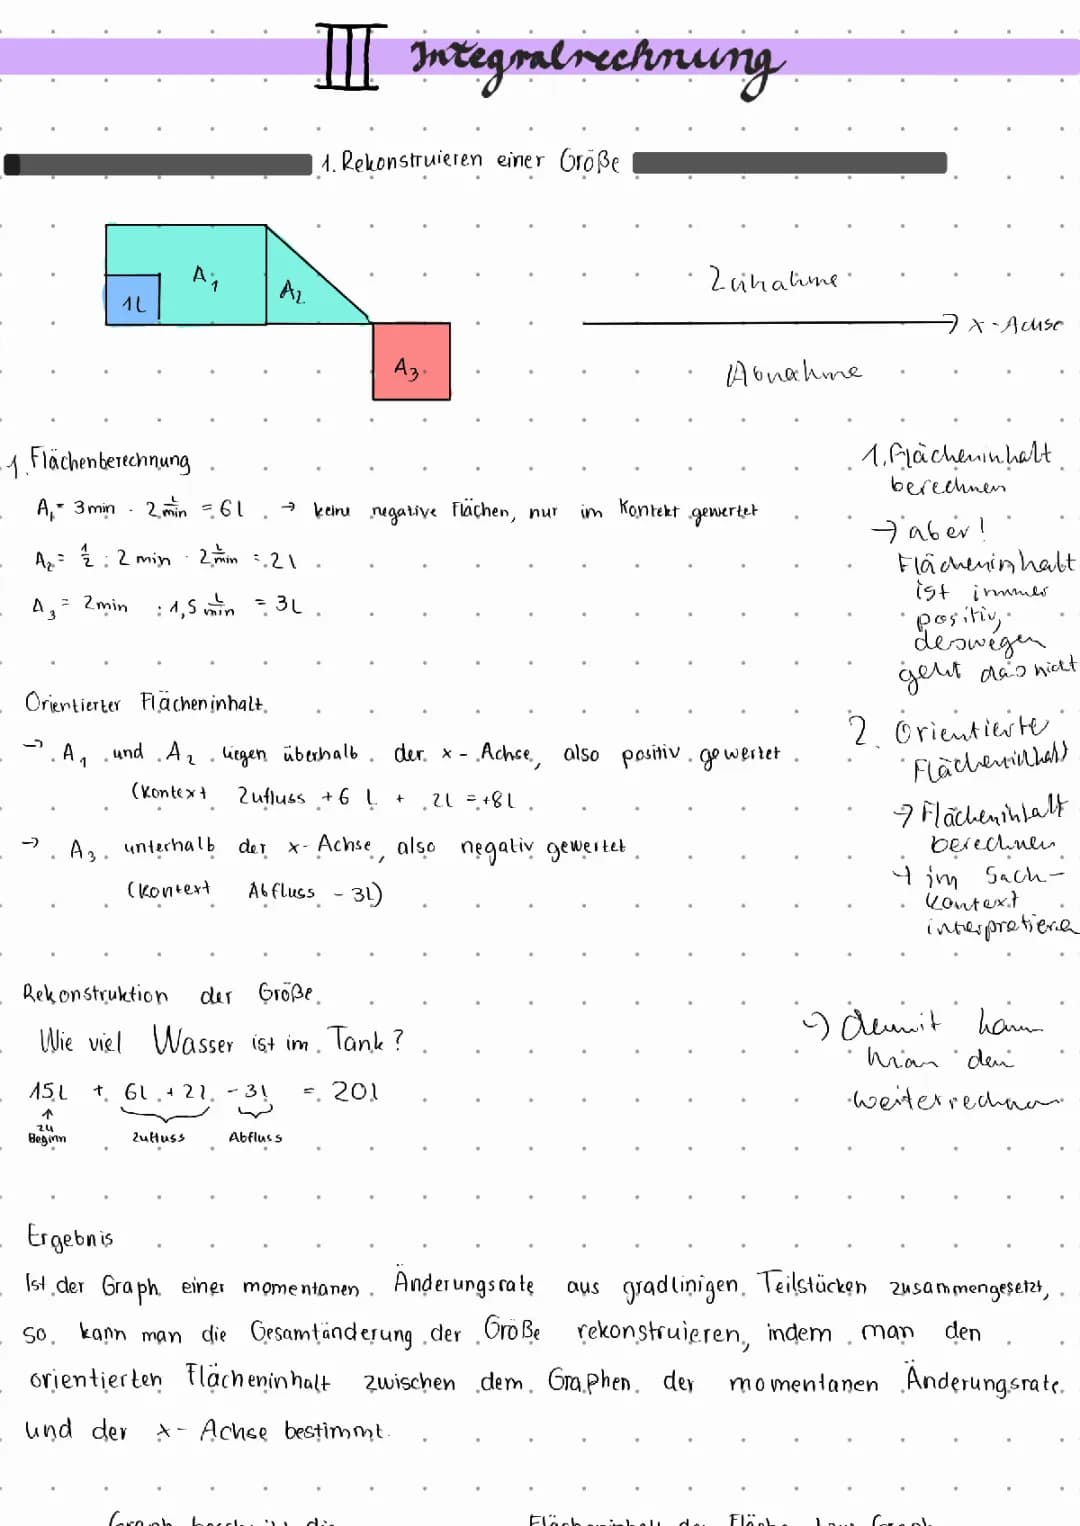 III Integralrechnung
1. Rekonstruieren einer Größe
A1
A2
1L
A3
Zunahme
x-Achse
Abnahme
1. Flächenberechnung
A1 = 3min · 2 L/min = 6l → keine negative Flächen, nur im Kontext gewertet
A2 = 1/2 · 2 min · 2 L/min = 2l
A3 = 2min · 1,5 L/min = 3L
Orientierter Flächeninhalt
→ A1 und A2 liegen überhalb der x-Achse, also positiv gewertet
(Kontext Zufluss +6 l + 2l = +8l
→ A3 unterhalb der x-Achse, also negativ gewertet
(Kontext Abfluss - 3l)
Rekonstruktion der Größe
Wie viel Wasser ist im Tank?
15L + 6l + 2l - 3l = 20l
↑
zu
Beginn
Zufluss Abfluss
Ergebnis
Ist der Graph einer momentanen Änderungsrate aus gradlinigen Teilstücken zusammengesetzt,
so kann man die Gesamtänderung der Größe rekonstruieren, indem man den
orientierten Flächeninhalt zwischen dem Graphen der momentanen Änderungsrate
und der x-Achse bestimmt.
1. Flächeninhalt
berechnen
→ aber!
Flächeninhalt
ist immer
positiv,
deswegen
geht das nicht
2. Orientierte
Flächeninhalt
→ Flächeninhalt
berechnen
→ im Sach-
kontext
interpretieren
→ damit kann
man den
weiterrechnen